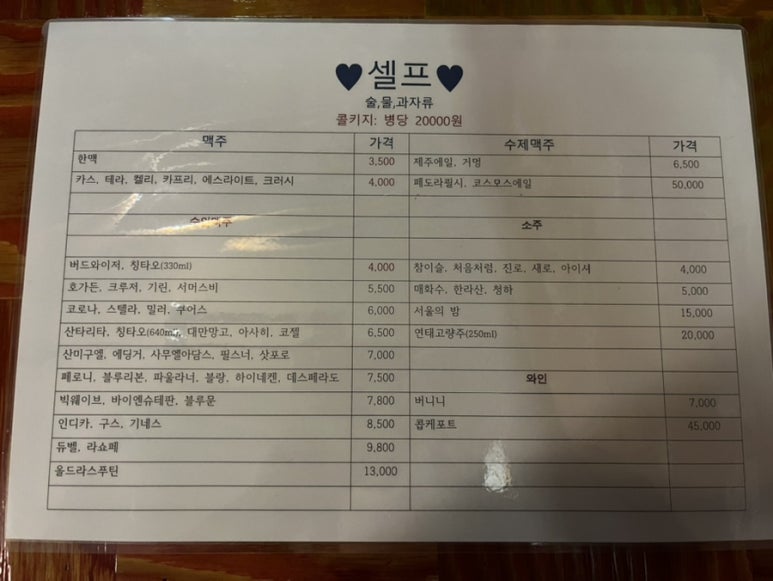 ♥셀프♥
술,물,과자류
콜키지: 병당 20000원
맥주 가격 수제맥주 가격
한맥 3,500 제주에일, 거멍 6,500
카스, 테라, 켈리, 카프리, 에스라이트, 크러시 4,000 페도라필시, 코스모스에일 50,000
수입맥주 소주
버드와이저, 칭타오(330ml) 4,000 참이슬, 처음처럼, 진로, 새로, 아이셔 4,000
호가든, 크루저, 기린, 서머스비 5,500 매화수, 한라산, 청하 5,000
코로나, 스텔라, 밀러, 쿠어스 6,000 서울의 밤 15,000
산타리타, 칭타오(640ml), 대만망고, 아사히, 코젤 6,500 연태고량주(250ml) 20,000
산미구엘, 에딩거, 사무엘아담스, 필스너, 삿포로 7,000
페로니, 블루리본, 파울라너, 블랑, 하이네켄, 데스페라도 7,500 와인
빅웨이브, 바이엔슈테판, 블루문 7,800 버니니 7,000
인디카, 구스, 기네스 8,500 콥케포트 45,000
듀벨, 라쇼페 9,800
올드라스푸틴 13,000